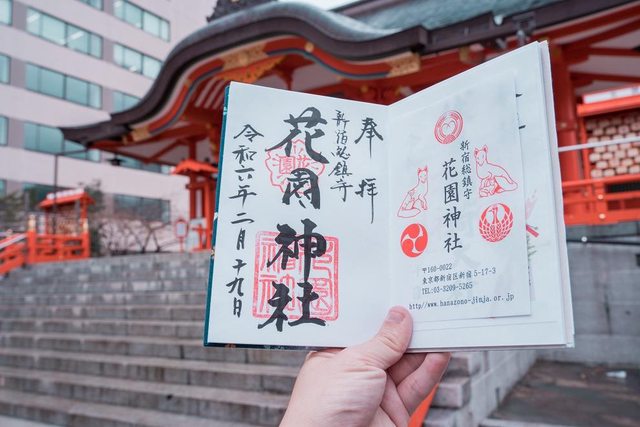 奉拝
新宿総鎮守
花園神社
令和六年二月十九日
新宿総鎮守
花園神社
〒160-0022
東京都新宿区新宿5-17-3
TEL:03-3209-5265
http://www.hanazono-jinja.or.jp